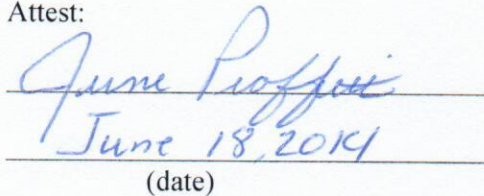 Attest:
June Proffitt
June 18, 2014
(date)